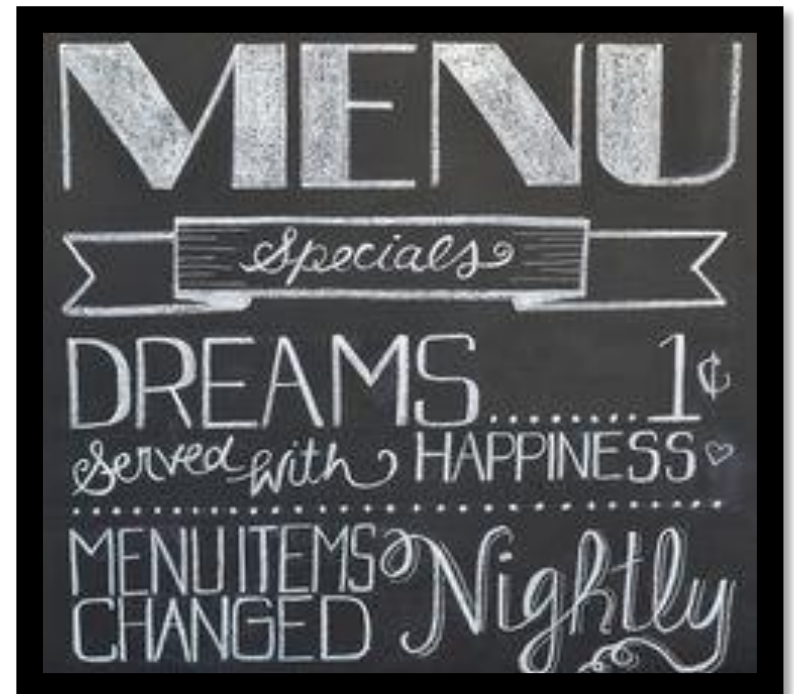 MENU
Specials
DREAMS.........1¢
Served with HAPPINESS♡
MENU ITEMS CHANGED Nightly